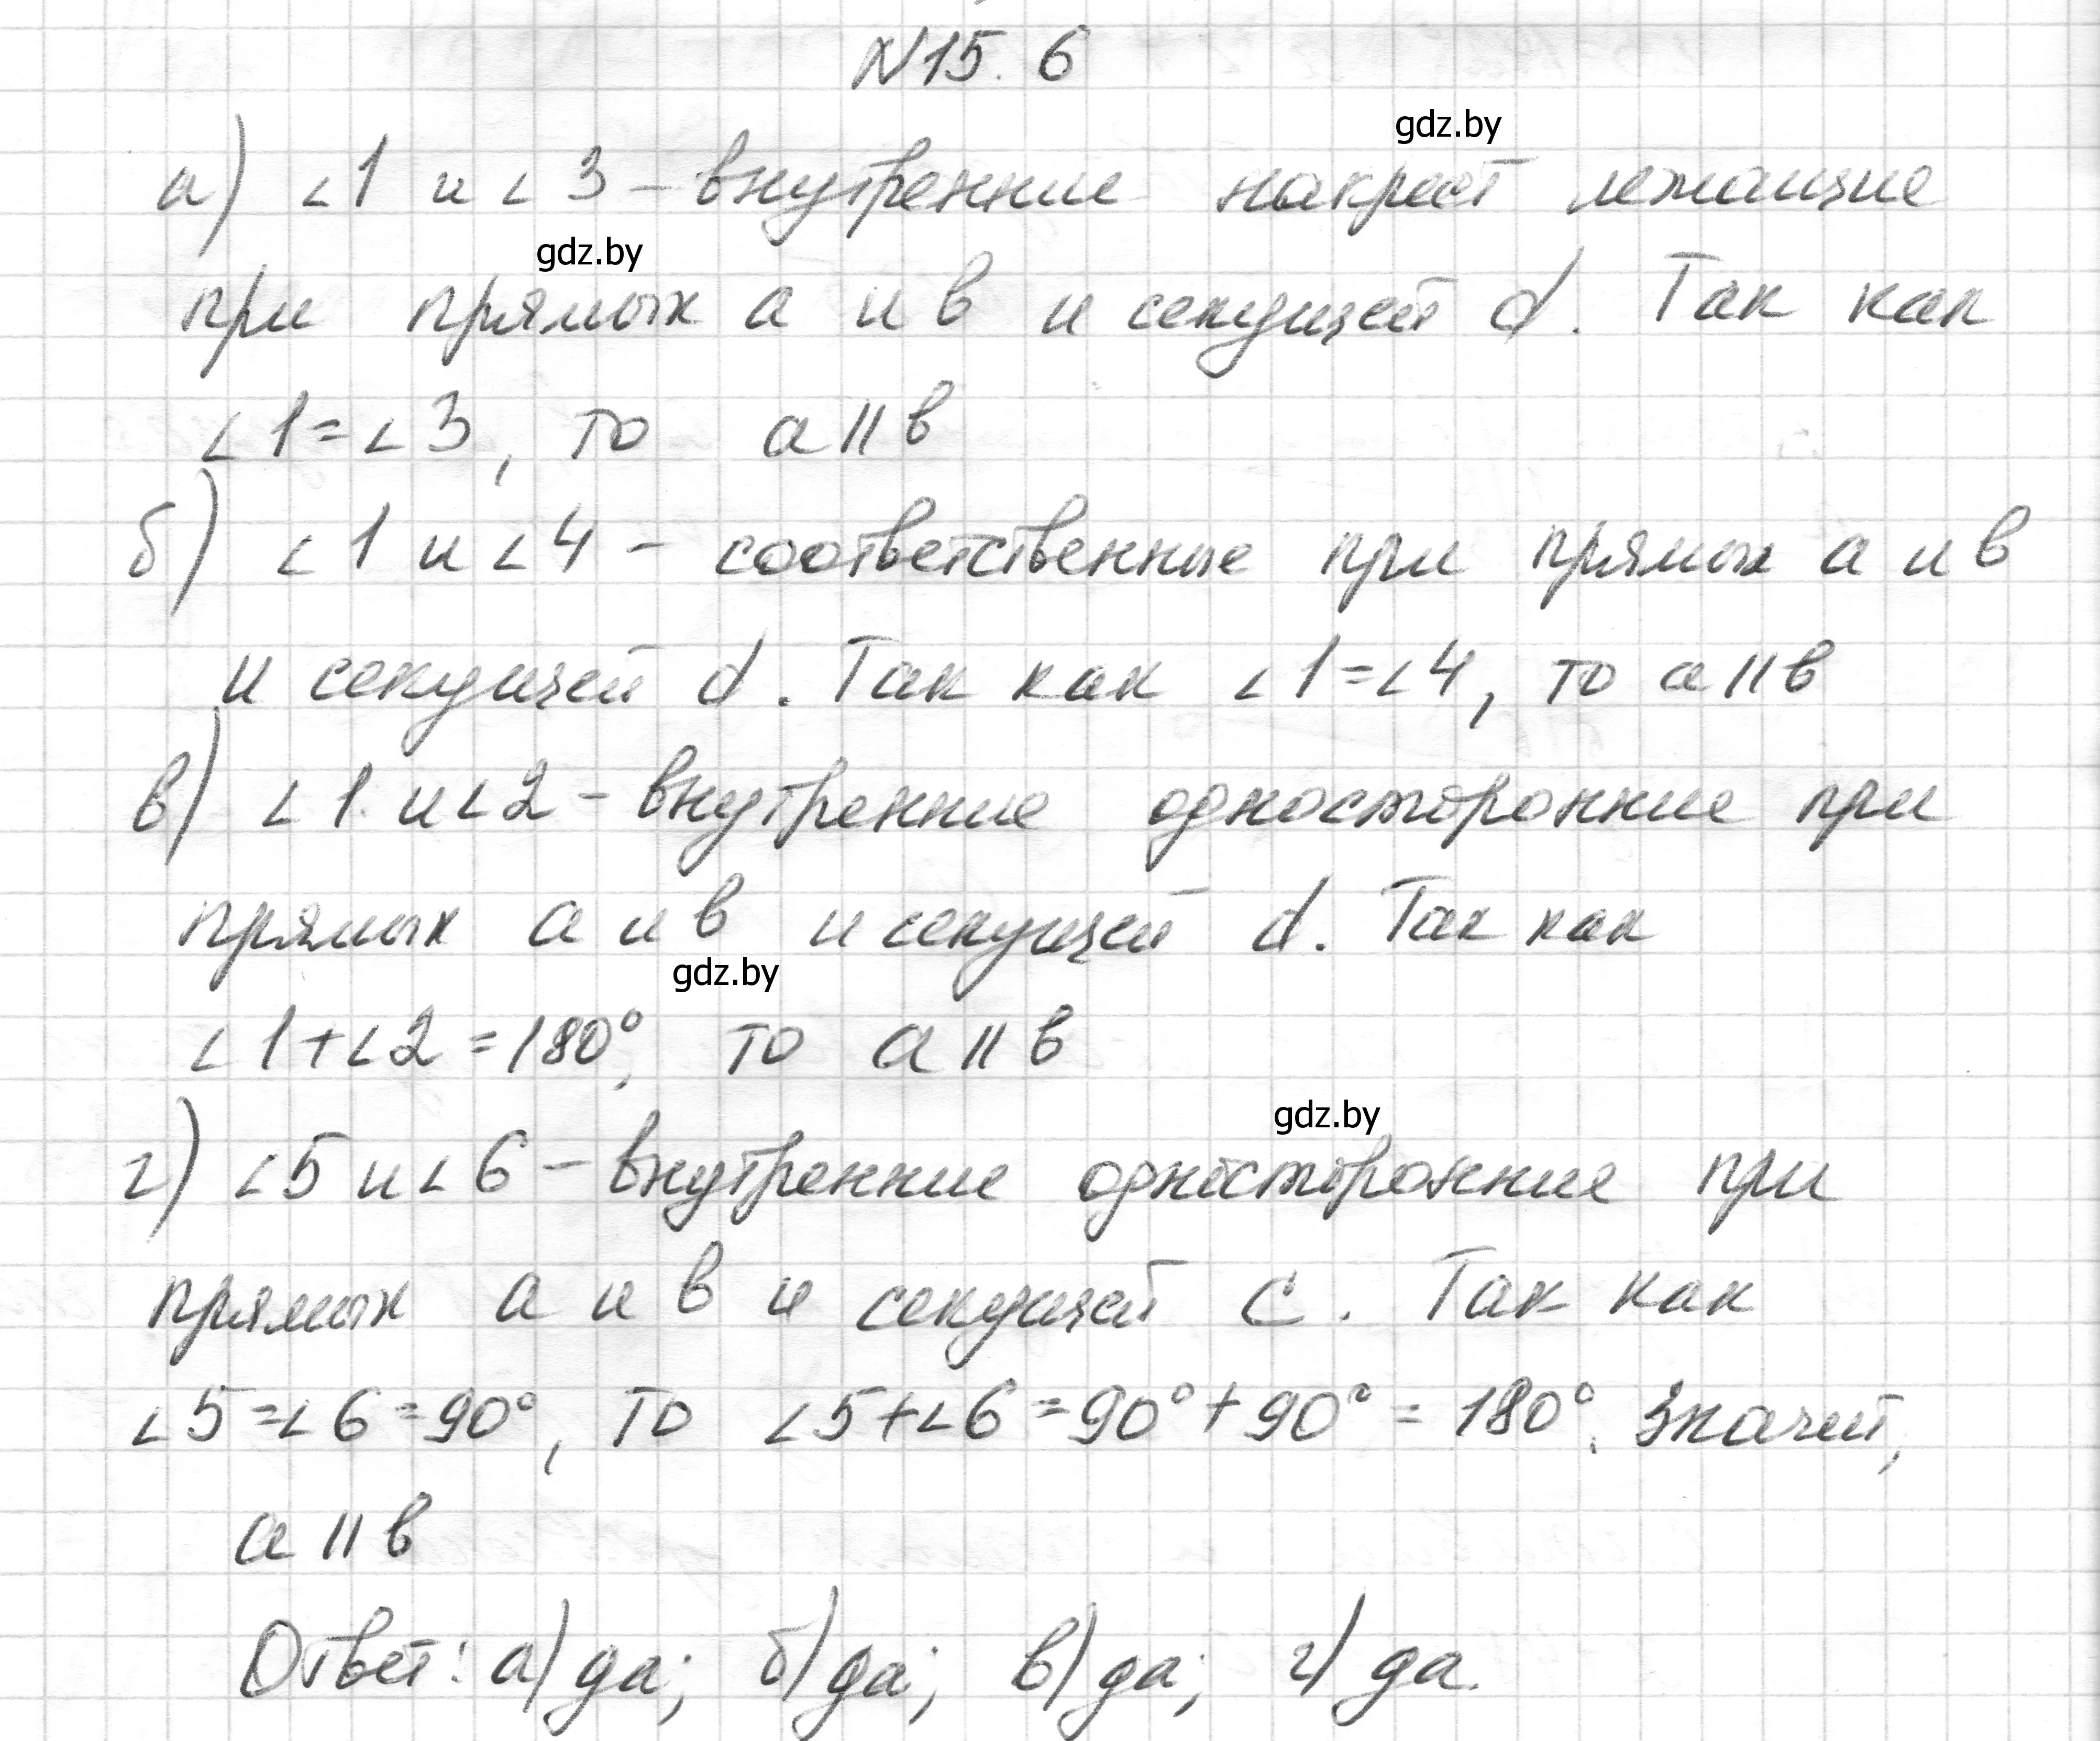 N15. 6
gdz.by
а) ∠1 и ∠3 – внутренние накрест лежащие
gdz.by
при прямых а и в и секущей d. Так как
∠1=∠3, то а||в
б) ∠1 и ∠4 – соответственные при прямых а и в
и секущей d. Так как ∠1=∠4, то а||в
в) ∠1 и ∠2 – внутренние односторонние при
прямых а и в и секущей d. Так как
gdz.by
∠1+∠2=180°, то а||в
gdz.by
г) ∠5 и ∠6 – внутренние односторонние при
прямых а и в и секущей с. Так как
∠5=∠6=90°, то ∠5+∠6=90°+90°=180°. Значит,
а||в
Ответ: а) да; б) да; в) да; г) да.